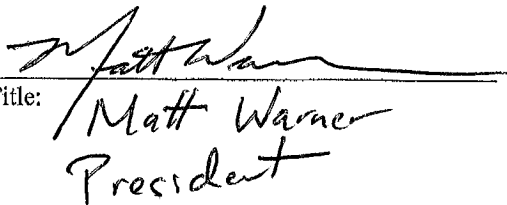 Matt Warner
Title:
Matt Warner
President